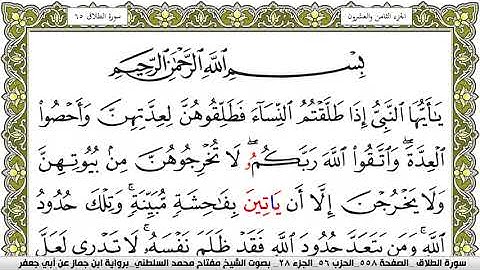 الجزء الثامن والعشرون
سورة الطلاق ٦٥
بِسْمِ اللَّهِ الرَّحْمَٰنِ الرَّحِيمِ
يَٰأَيُّهَا النَّبِيُّ إِذَا طَلَّقْتُمُ النِّسَآءَ فَطَلِّقُوهُنَّ لِعِدَّتِهِنَّ وَأَحْصُوا
الْعِدَّةَ ۖ وَاتَّقُوا اللَّهَ رَبَّكُمُۥ ۖ لَا تُخْرِجُوهُنَّ مِنۢ بُيُوتِهِنَّ
وَلَا يَخْرُجْنَ إِلَّا أَن يَاتِينَ بِفَٰحِشَةٍ مُّبَيِّنَةٍ ۚ وَتِلْكَ حُدُودُ
اللَّهِ ۚ وَمَن يَتَعَدَّ حُدُودَ اللَّهِ فَقَدْ ظَلَمَ نَفْسَهُۥ ۚ لَا تَدْرِى لَعَلَّ
سورة الطلاق _الصفحة ٥٥٨_ الحزب ٥٦_ الجزء ٢٨_ بصوت الشيخ مفتاح محمد السلطني_ برواية ابن جماز عن أبي جعفر